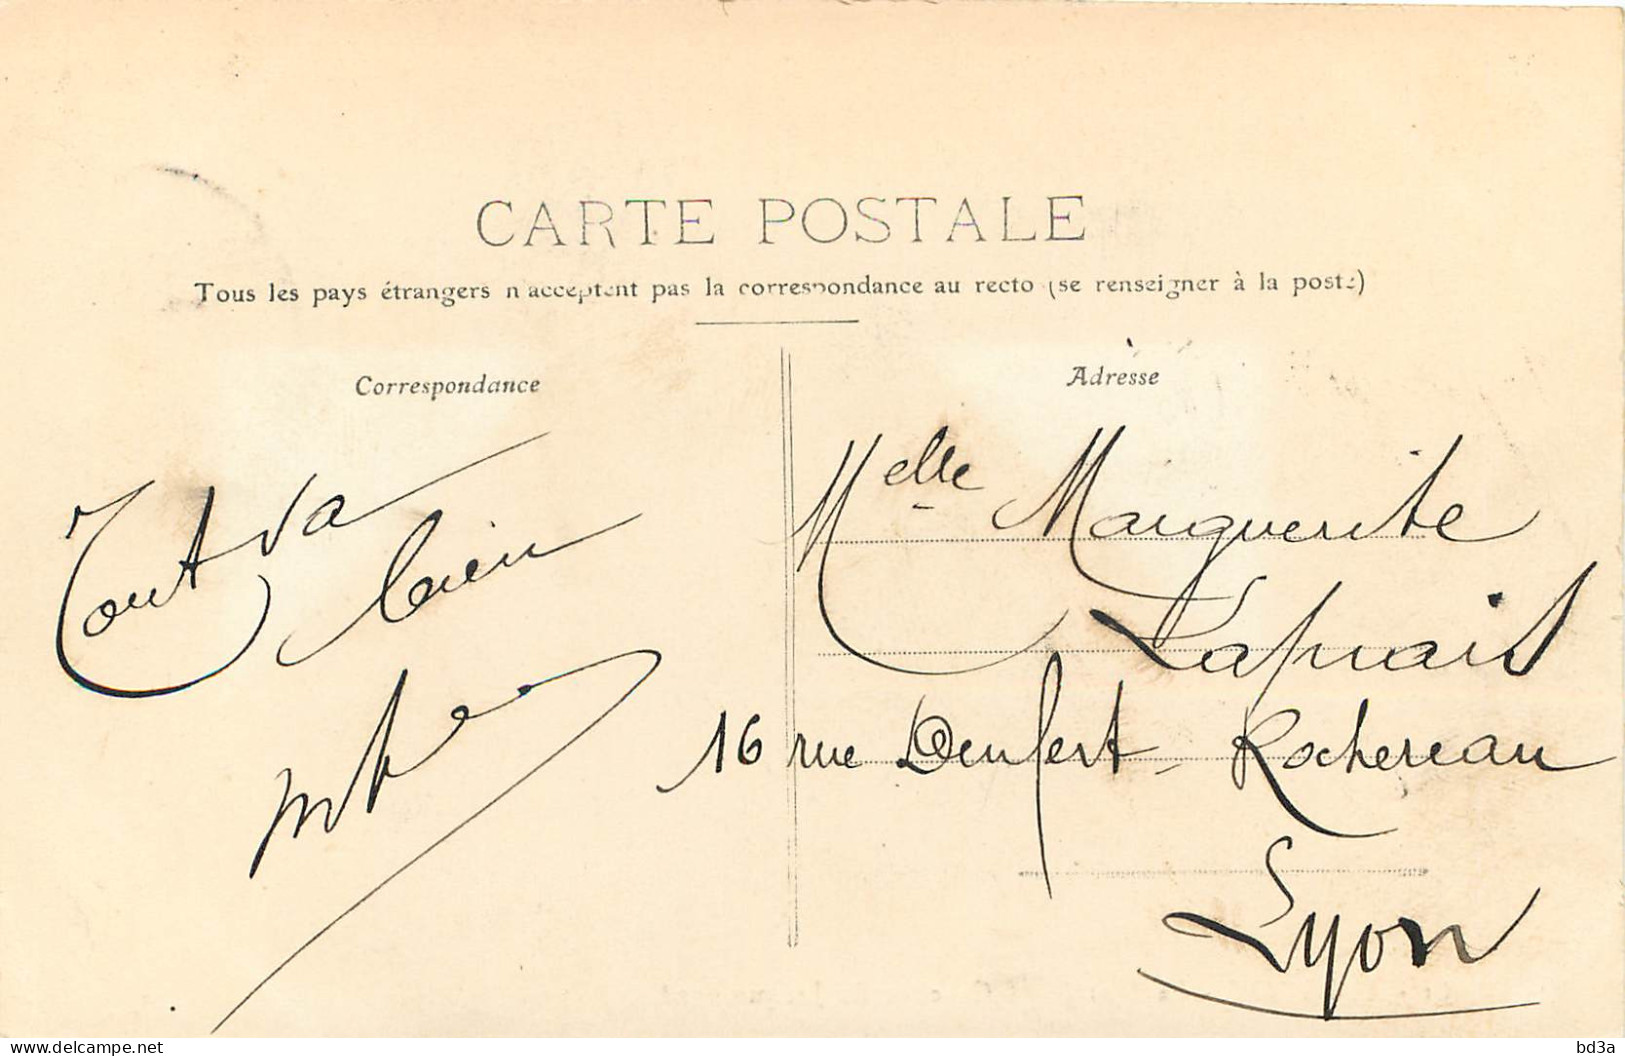 CARTE POSTALE
Tous les pays étrangers n'acceptent pas la correspondance au recto (se renseigner à la poste)
Correspondance
Tout va
bien
Adresse
Melle Marguerite
16 rue Denfert-Rochereau
Lyon
delcampe.net
bd3a